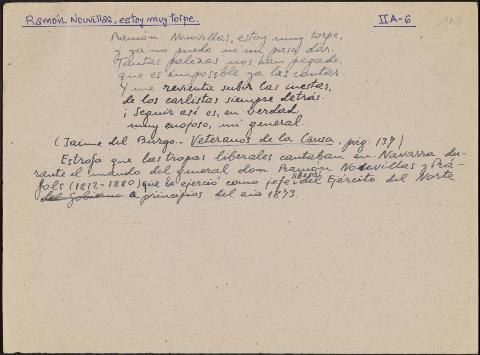 Ramón Nouvillas, estoy muy torpe. IIA-6
Ramón Nouvillas, estoy muy torpe,
y ya no puedo ni un paso dar.
Tantas palizas nos han pegado,
que es imposible ya las contar.
Y me revienta subir las cuestas,
de los carlistas siempre detrás.
¡Seguir así es, en verdad
muy enojoso, mi general.
(Jaime del Burgo. Veteranos de la Causa, pág. 137)
Estrofa que las tropas liberales cantaban en Navarra du-
rante el mando del general don Ramón Nouvillas y Rá-
fols (1812-1880) que lo ejerció como jefe del Ejército liberal del Norte
a principios del año 1873.